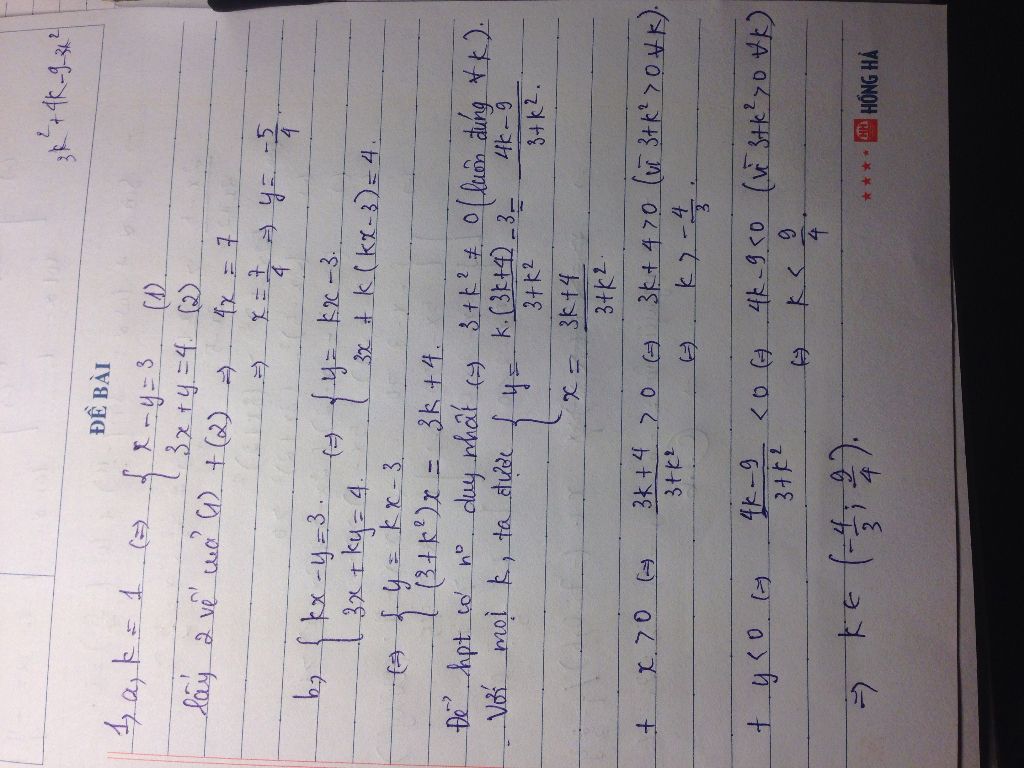 3k² + 4k - 9 - 3k²
ĐỀ BÀI
1, a, k = 1 (=) { x - y = 3 (1)
3x + y = 4. (2)
lấy 2 vế của (1) + (2) => 4x = 7
=> x = 7/4 => y = -5/4
b, { kx - y = 3. (=) { y = kx - 3.
3x + ky = 4. 3x + k(kx - 3) = 4.
(=) { y = kx - 3
(3 + k²)x = 3k + 4.
Để hpt có n⁰ duy nhất (=) 3 + k² ≠ 0 (luôn đúng ∀k).
Với mọi k, ta được { y = k.(3k+4)/3+k² - 3 = 4k-9/3+k².
x = 3k+4/3+k².
+ x > 0 (=) 3k+4/3+k² > 0 (=) 3k + 4 > 0 (vì 3 + k² > 0 ∀k).
(=) k > -4/3.
+ y < 0 (=) 4k-9/3+k² < 0 (=) 4k - 9 < 0 (vì 3 + k² > 0 ∀k)
(=) k < 9/4
=> k ∈ (-4/3; 9/4).
★★★★ HỒNG HÀ